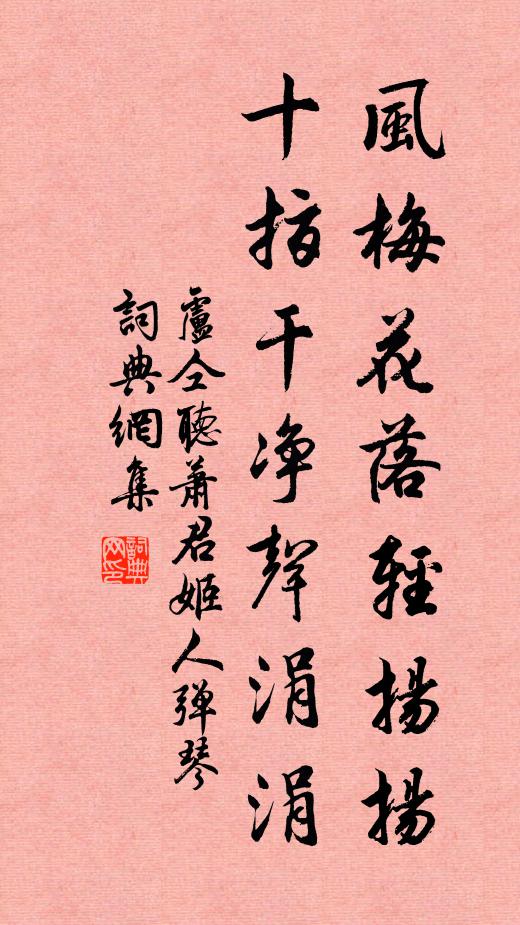 風梅花落輕揚揚
十指干净聲涓涓
盧仝聽蕭君姬人弹琴
詞典網集
詞典网印